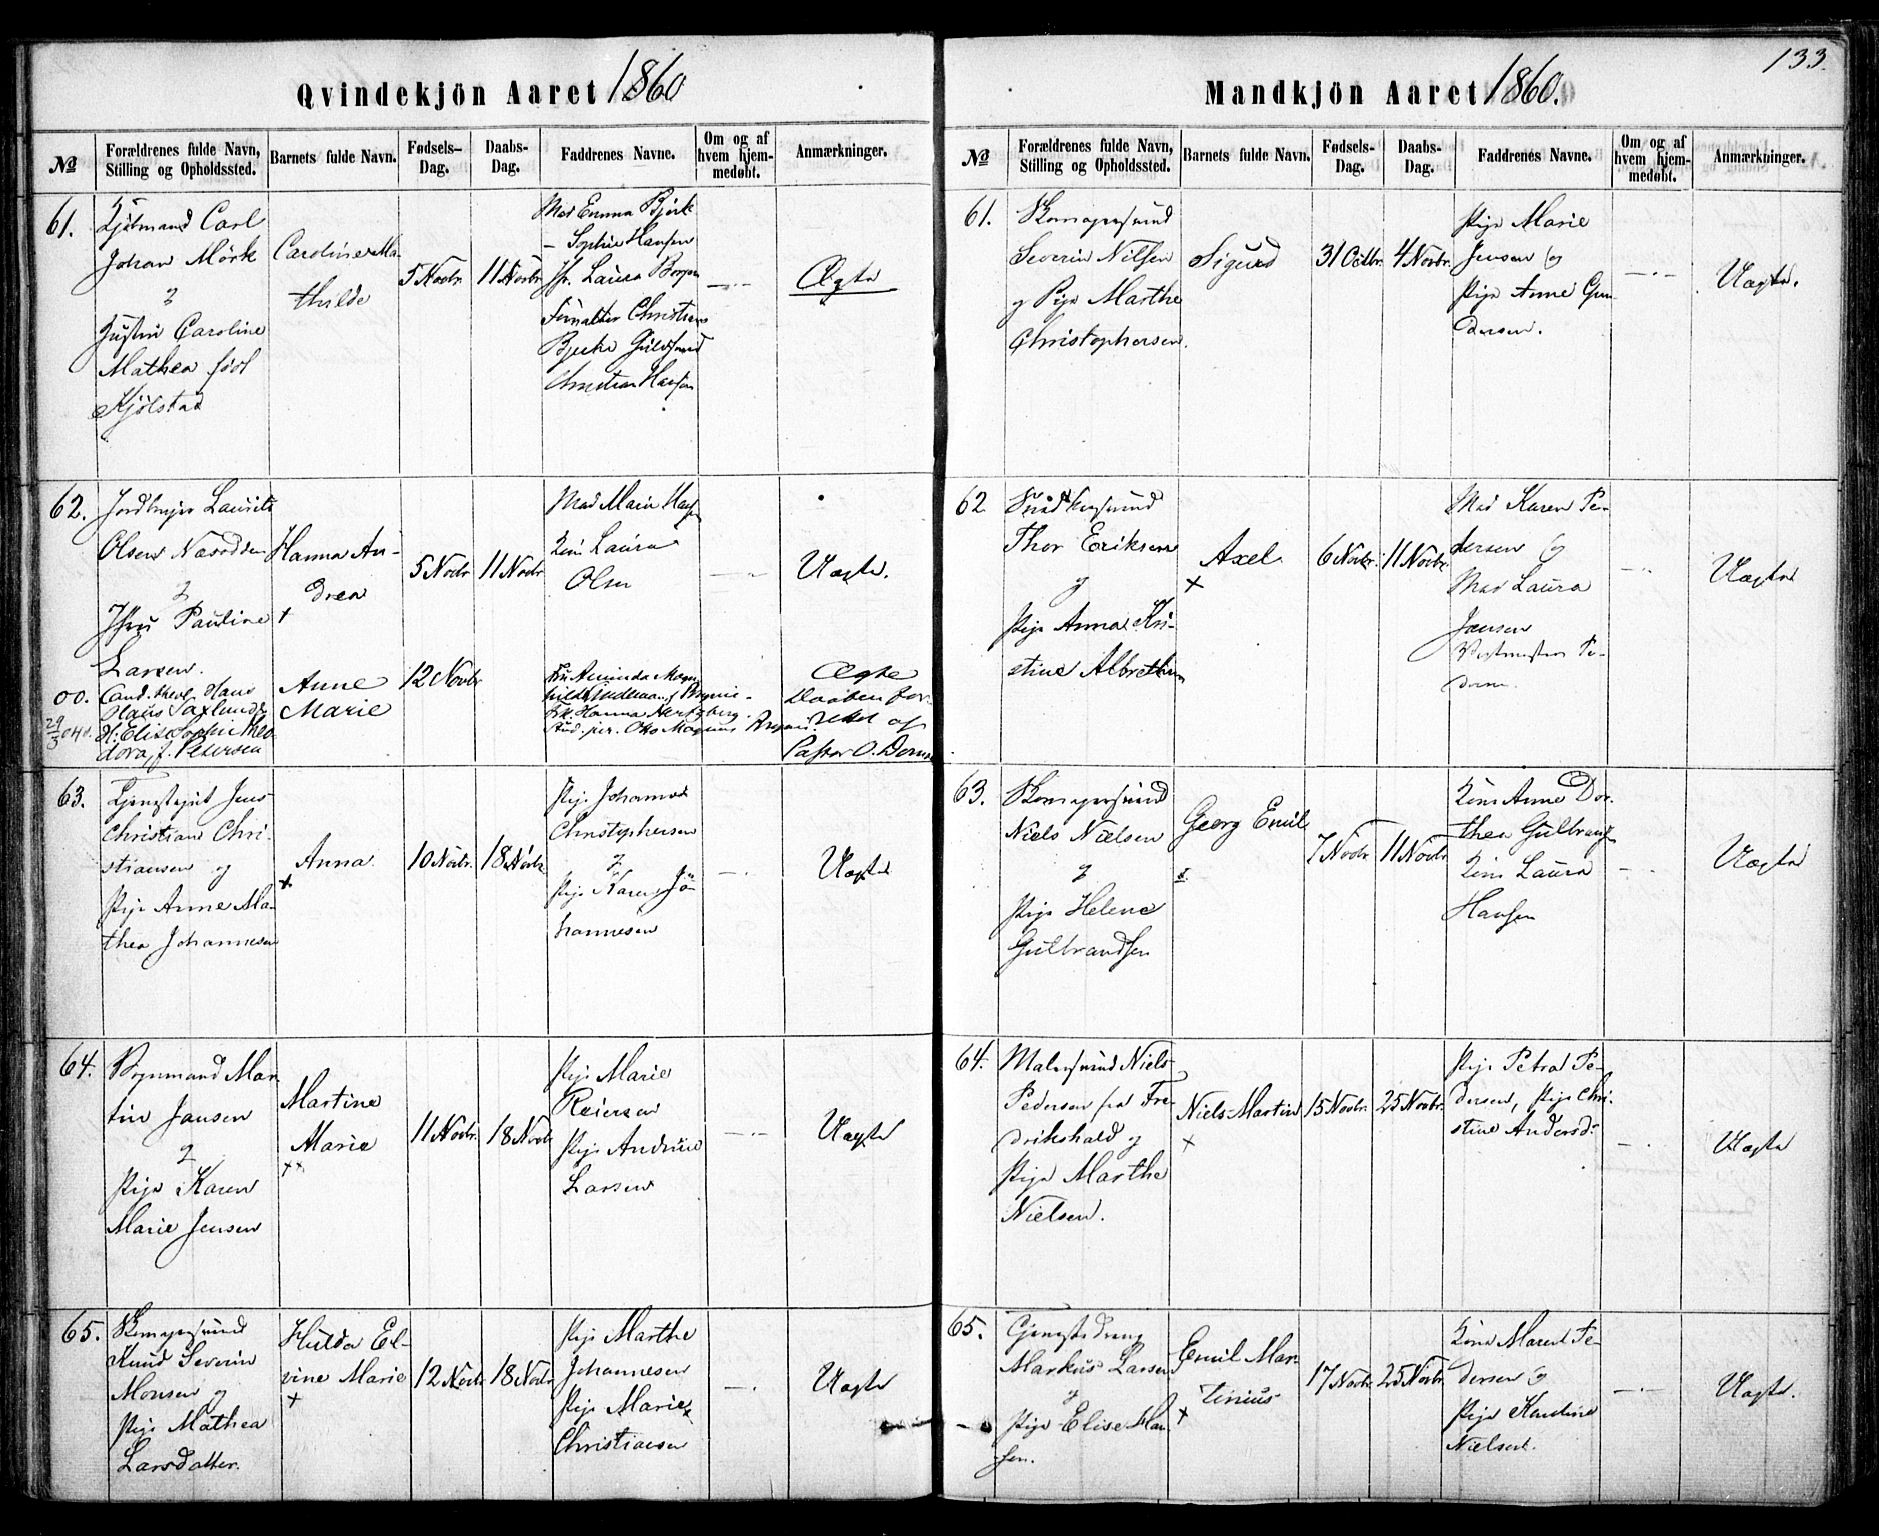 133.
Qvindekjön Aaret 1860
№
Forældrenes fulde Navn,
Stilling og Opholdssted.
Barnets fulde Navn.
Fødsels-
Dag.
Daabs-
Dag.
Faddrenes Navne.
Om og af
hvem hjem-
medøbt.
Anmærkninger.
61.
Carl
Johan Mörk
Hustru Caroline
Mathea föd
Kjölstad
Caroline Ma-
thilde
5 Novbr.
11 Novbr.
Mad Emma Björk
— Sophie Hansen
Jfr. Laura Borgen
Christians
Christian Hansen
Ægte
62.
Laurits
Olsen Næsodden
Pauline
Larsen.
Hanna An-
drea
+
5 Novbr
11 Novbr
Mad Marie
Laura
Olsen
Uægte.
00.
29/3 04
Cand. theol. Hans
H. Elise Sophie Theo-
dora, f. Petersen
Anne
Marie
12 Novbr
Fru Aminda
Frk. Hanna Hertzberg.
Stud. jur. Oto Magnus
Ægte
Daaben for-
rettet af
Pastor O.
63.
Tjenestegut Jens
Christian Chri-
stiansen og
Pige Anne Ma-
thea Johannesen
Anna
+
10 Novbr.
18 Novbr.
Pige Johanne
Christophersen
Pige Karen Jo-
hannesen
Uægte
64.
Mar-
tin Jansen
Pige Karen
Marie Jensen
Martine
Marie
++
11 Novbr.
18 Novbr
Pige Marie
Reiersen
Pige Andrine
Larsen
Uægte
65.
Skomagersvend
Knud Severin
Monsen og
Pige Mathea
Larsdatter.
Hulda El-
vine Marie
+
12 Novbr
18 Novbr
Pige Marthe
Johannesen
Pige Marie
Christiansen
Uægte
Mandkjön Aaret 1860.
№
Forældrenes fulde Navn,
Stilling og Opholdssted.
Barnets fulde Navn.
Fødsels-
Dag.
Daabs-
Dag.
Faddrenes Navne.
Om og af
hvem hjem-
medøbt.
Anmærkninger.
61.
Skomagersvend
Severin Nilsen
og Pige Marthe
Christophersen.
Sigurd
31 Octbr.
4 Novbr.
Pige Marie
Jensen og
Pige Anne Gun-
dersen.
Uægte.
62
Thor Eriksen
Pige Anna Kri-
stine Albrethsen
Axel
+
6 Novbr.
11 Novbr.
Mad Karen Pe-
dersen og
Mad Laura
Jansen
Pe-
dersen
Uægte
63.
Skomagersvend
Niels Nielsen
Pige Helene
Gulbrandsen
Georg Emil
7 Novbr.
11 Novbr.
Kone Anne Dor-
thea Gulbrands
Kone Laura
Hansen
Uægte
64.
Malersvend Niels
Pedersen fra Fre-
drikshald og
Pige Marthe
Nielsen.
Niels Martin
+
15 Novbr.
25 Novbr.
Pige Petra Pe-
dersen, Pige Chri-
stine Andersd.
Uægte
65.
Tjenestedreng
Markus Larsen
Pige Elise Han-
sen.
Emil Mar-
tinius
+
17 Novbr.
25 Novbr.
Kone Maren Pe-
dersen og
Pige Karoline
Nielsen.
Uægte.